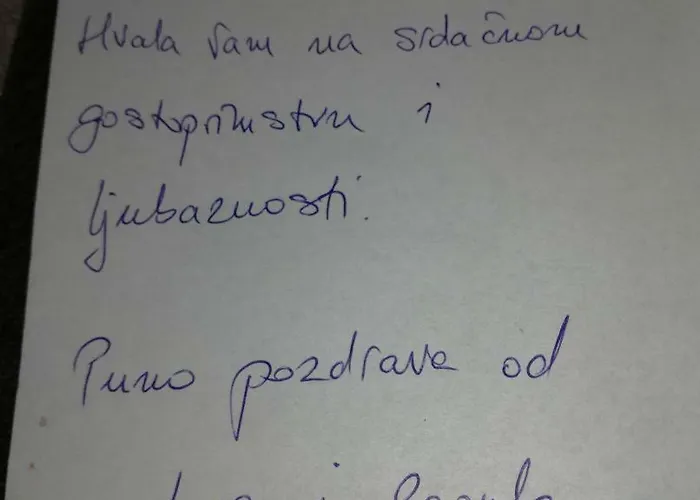 Hvala Vam na srdačnom
gostoprimstvu i
ljubaznosti.
Puno pozdrava od